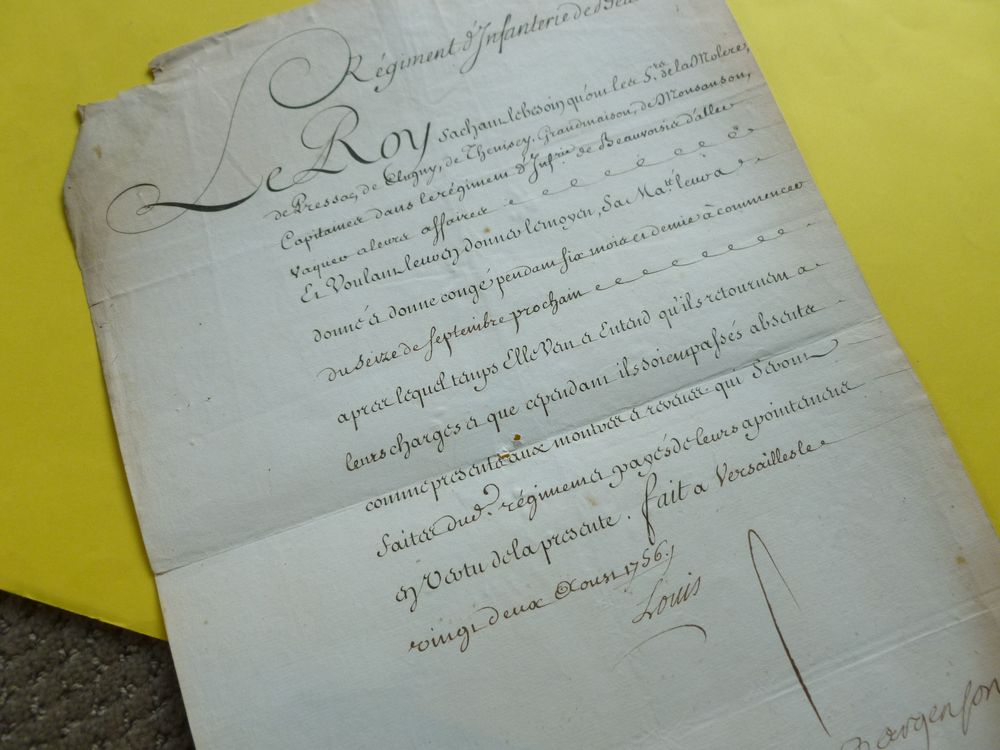 Régiment d'Infanterie de Beau
Le Roy sachant le besoin qu'ont les S.rs de la Molere,
de Pressac, de Clugny, de Thenisey, Grandmaison, de Monsanson,
Capitaines dans le régiment d'Inf.rie de Beauvoisis d'aller
vaquer a leurs affaires
Et Voulant leur en donner le moyen, Sa Ma.té leur a
donné et donne congé pendant six mois et demie à commencer
du seize de septembre prochain
apres lequel temps Elle Veut et Entend qu'ils retournent a
leurs charges et que cependant ils soient passés absents
comme presents aux montres et reveues qui Seront
faites dud.t régiment et payés de leurs apointements
en Vertu de la presente. fait a Versailles le
vingt deux Aoust 1756.
Louis